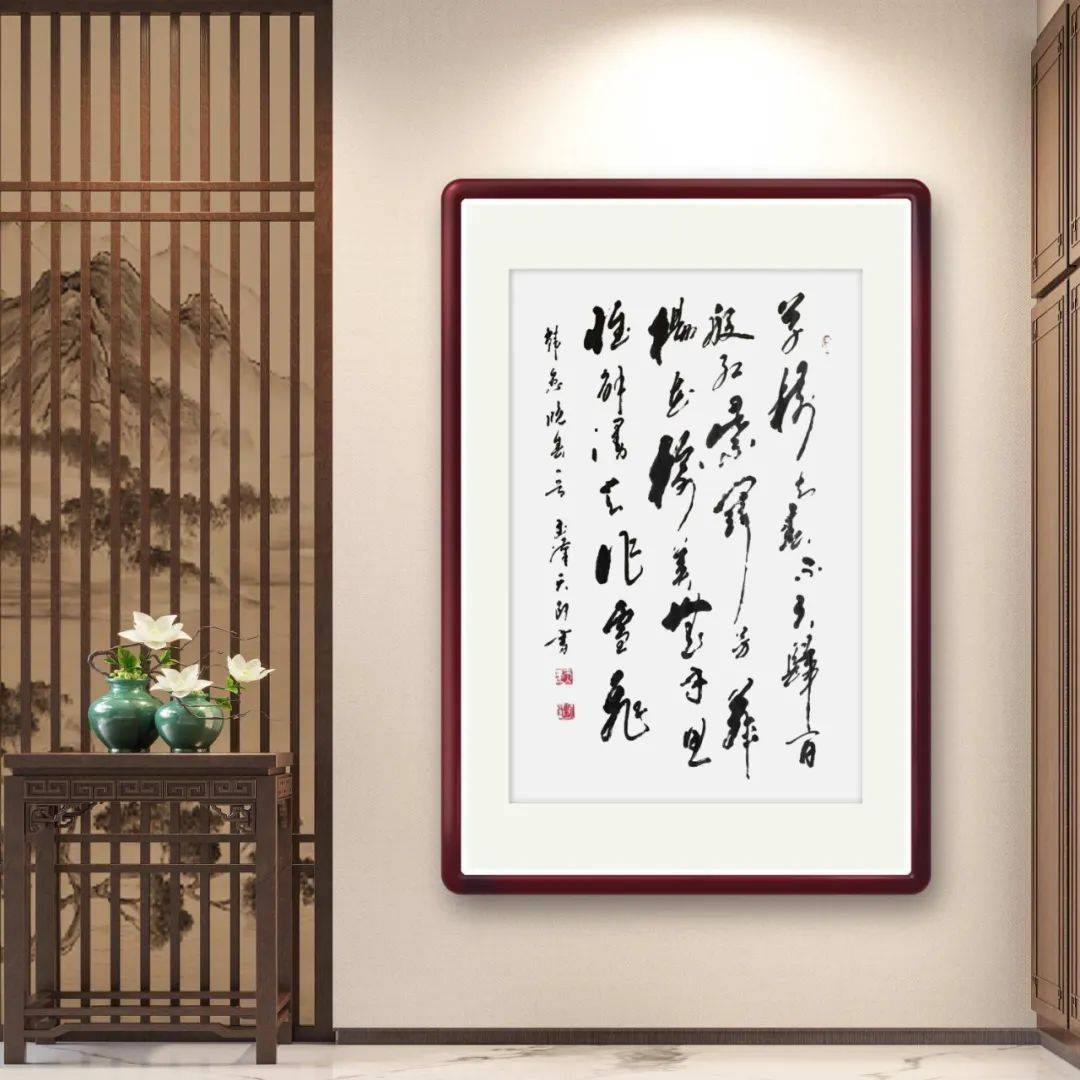 草樹知春不久歸百
般紅紫鬥芳菲
楊花榆莢無才思
惟解漫天作雪飛
韓愈晚春 書